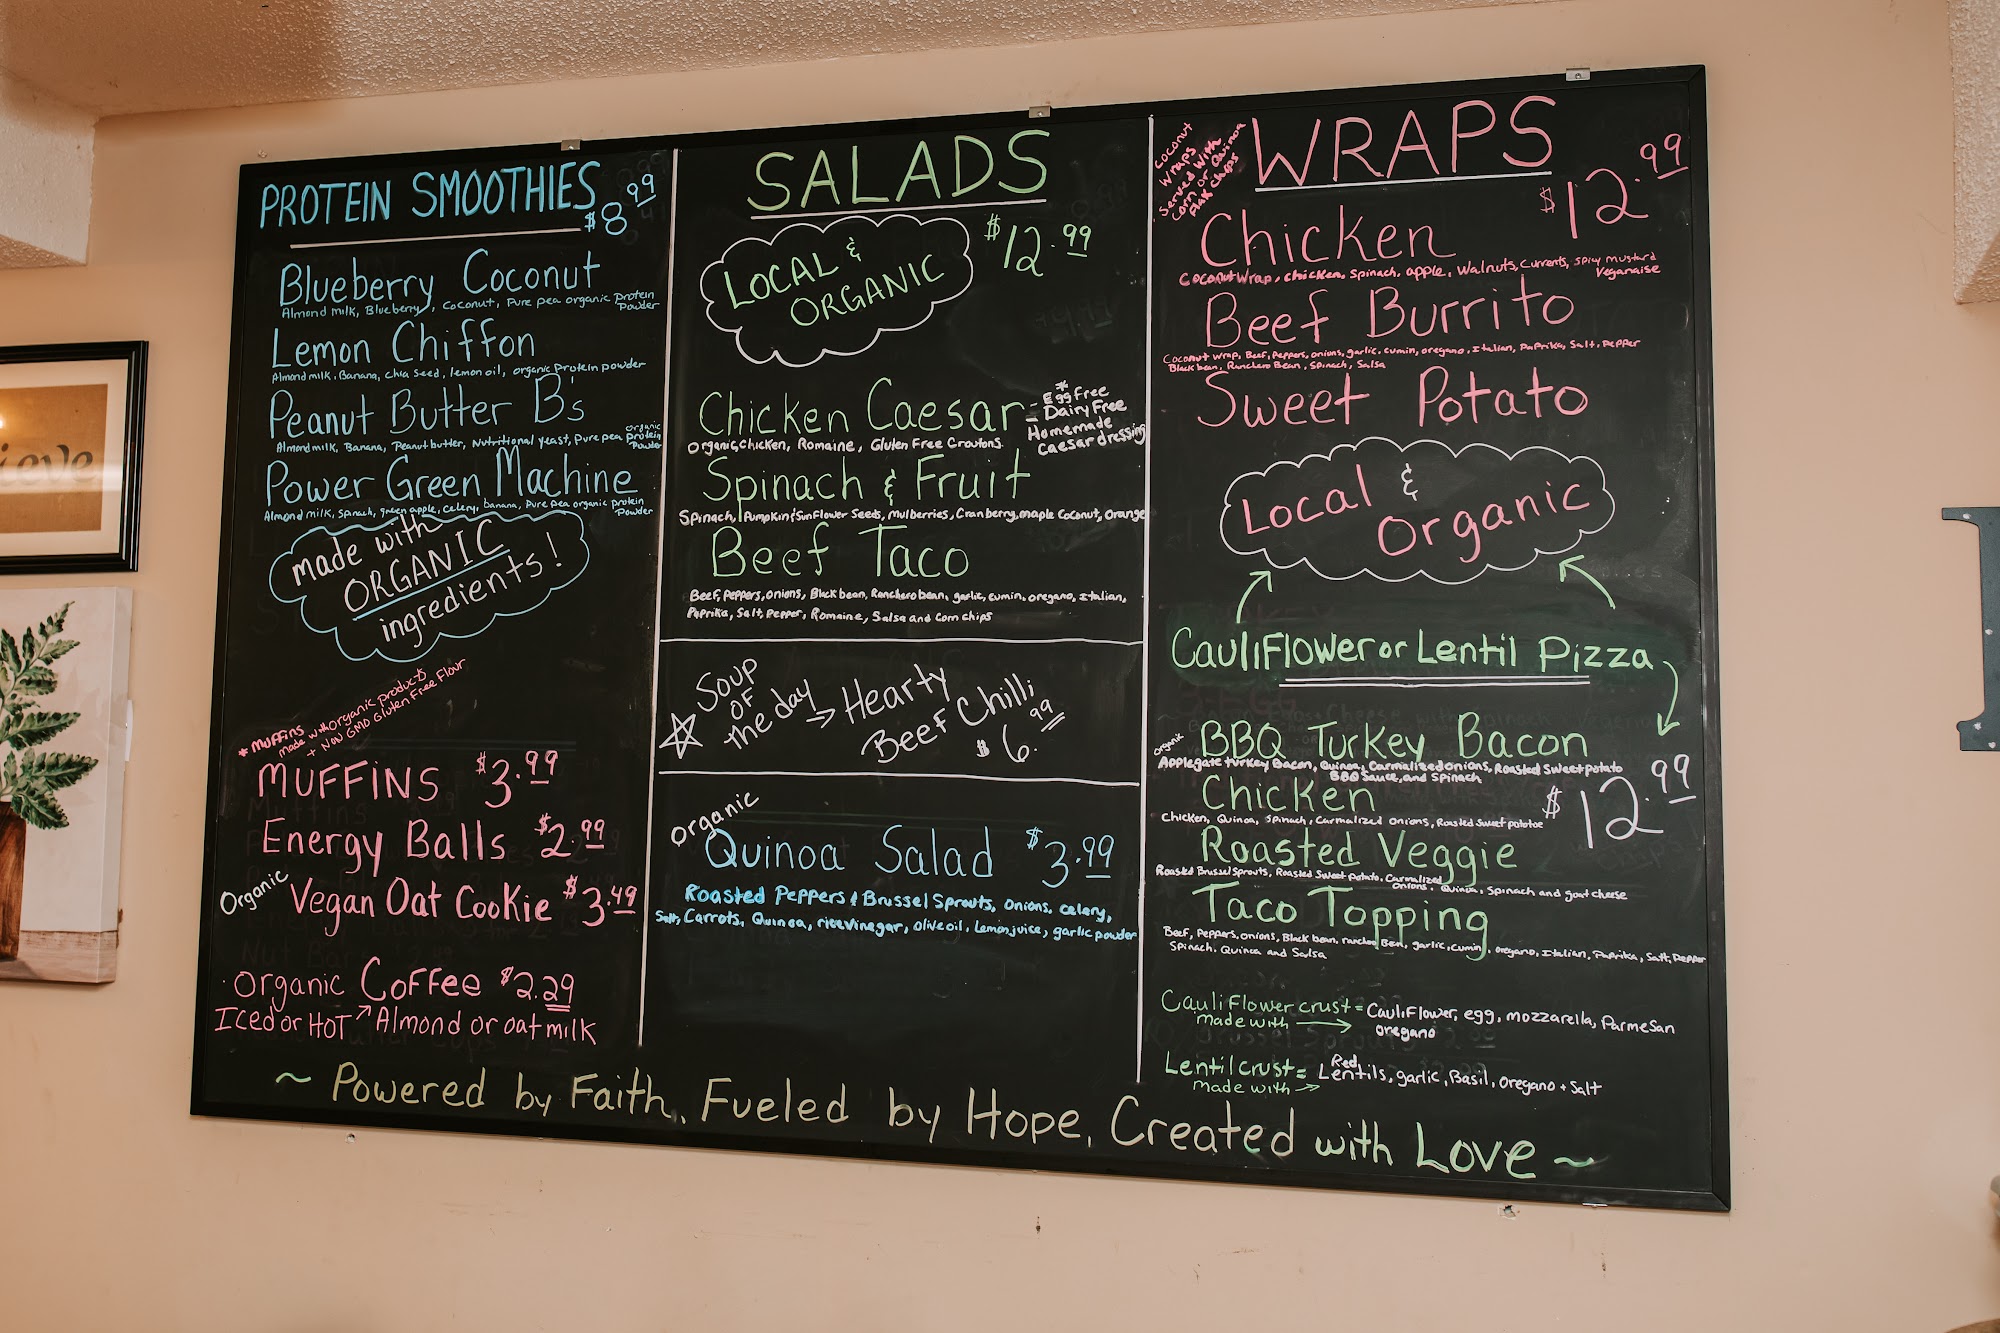 PROTEIN SMOOTHIES
$8.99
Blueberry Coconut
Almond milk, Blueberry, Coconut, Pure pea organic protein
Powder
Lemon Chiffon
Almond milk, Banana, chia seed, lemon oil, organic protein powder
Peanut Butter B's
Almond milk, Banana, Peanut butter, Nutritional yeast, Pure pea organic protein
Powder
Power Green Machine
Almond milk, spinach, green apple, celery, banana, Pure pea organic protein
Powder
made with
ORGANIC
ingredients!
* Muffins
made with organic products
+ Non GMO Gluten Free Flour
MUFFINS $3.99
Energy Balls $2.99
Organic Vegan Oat Cookie $3.49
· Organic Coffee $2.29
Iced or HOT ↗ Almond or oat milk
SALADS
$12.99
LOCAL &
ORGANIC
Chicken Caesar
Organic Chicken, Romaine, Gluten Free Croutons
*
- Egg Free
- Dairy Free
Homemade
Caesar dressing
Spinach & Fruit
Spinach, Pumpkin & Sunflower Seeds, Mulberries, Cranberry, maple Coconut, Orange
Beef Taco
Beef, Peppers, onions, Black bean, Ranchero bean, garlic, cumin, oregano, Italian,
Paprika, Salt, Pepper, Romaine, Salsa and Corn chips
Soup
of
the day → Hearty
Beef Chilli
$6.99
Organic
Quinoa Salad $3.99
Roasted Peppers & Brussel Sprouts, Onions, celery,
Salt, Carrots, Quinoa, rice vinegar, olive oil, Lemon juice, garlic powder
Coconut
Wraps
Served with
Corn or Quinoa
Flak Chips
WRAPS
$12.99
Chicken
Coconut Wrap, chicken, Spinach, apple, Walnuts, Currents, Spicy mustard
Veganaise
Beef Burrito
Coconut wrap, Beef, Peppers, onions, garlic, cumin, oregano, Italian, Paprika, Salt, Pepper
Black bean, Ranchero Bean, Spinach, Salsa
Sweet Potato
Local &
Organic
Cauliflower or Lentil Pizza
organic BBQ Turkey Bacon
Applegate turkey Bacon, Quinoa, Carmalized onions, Roasted Sweet potato
BBQ Sauce, and Spinach
$12.99
Chicken
Chicken, Quinoa, Spinach, Carmalized Onions, Roasted Sweet potatoe
Roasted Veggie
Roasted Brussel Sprouts, Roasted Sweet Potato, Carmalized
onions, Quinoa, Spinach and goat cheese
Taco Topping
Beef, Peppers, onions, Black bean, ranchero Bean, garlic, cumin, oregano, Italian, Paprika, Salt, Pepper
Spinach, Quinoa and Salsa
Cauliflower crust = Cauliflower, egg, mozzarella, Parmesan
made with → oregano
Lentil crust = Red Lentils, garlic, Basil, oregano + Salt
made with →
~ Powered by Faith, Fueled by Hope, Created with Love ~
ieve